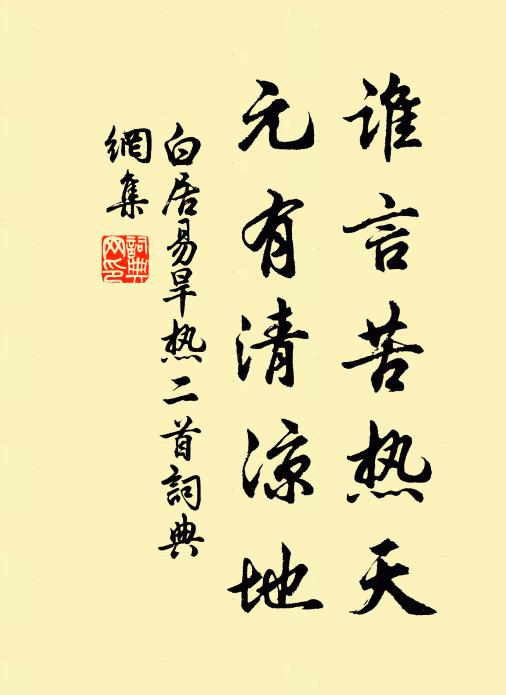 谁言苦热天
元有清凉地
白居易旱热二首词典
網集
詞典
网印